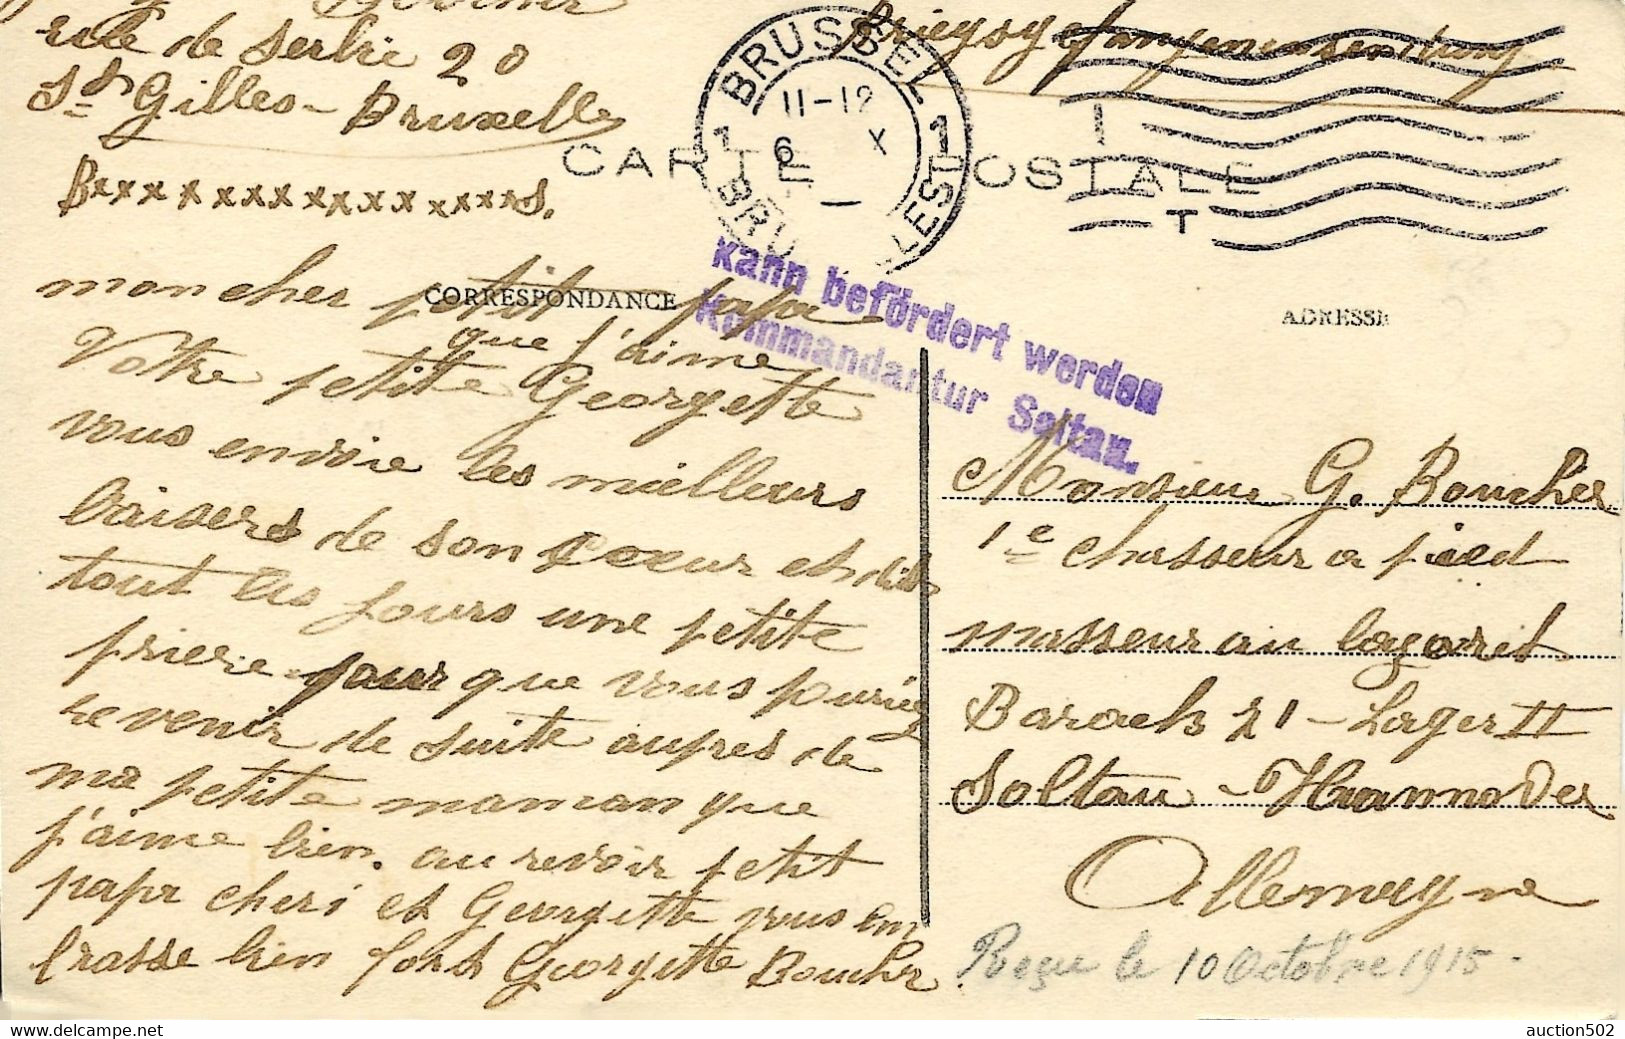 rue de Serbie 20
St Gilles - Bruxelles
Bxxxxxxxxxxxxxxxxs.
Kriegsgefangenensendung
BRUSSEL
11-12
1 6 X 1
BRU LES
CARTE POSTALE
T
kann befördert werden
Kommandantur Soltau.
CORRESPONDANCE
ADRESSE
mon cher petit papa
que j'aime
Votre petite Georgette
vous envoie les meilleurs
baisers de son coeur et dit
tout les jours une petite
priere pour que vous puriez
revenir de suite aupres de
ma petite maman que
j'aime bien. au revoir petit
papa cheri et Georgette vous em
brasse bien fort Georgette Boucher.
Monsieur G. Boucher
1e chasseur a pied
masseur au lazaret
Barack 21 - Lager II
Soltau - Hannover
Allemagne
Reçu le 10 Octobre 1915.
auction502